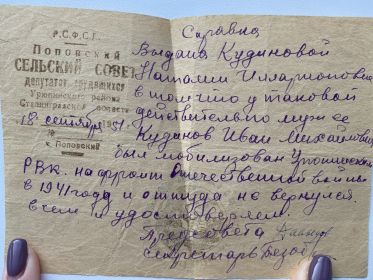 Р.С.Ф.С.Р.
Поповский
СЕЛЬСКИЙ СОВЕТ
депутатов трудящихся
Урюпинского района
Сталинградской области
18 сентября 51г.
№
х. Поповский
Справка
Выдана Кудиновой
Наталии Илларионовне
в том что у таковой
действительно муж ее
Кудинов Иван Михайлович
был мобилизован Урюпинским
РВК. на фронт Отечественной войны
в 1941 года и оттуда не вернулся
в чем и удостоверяем.
Предсовета
Секретарь